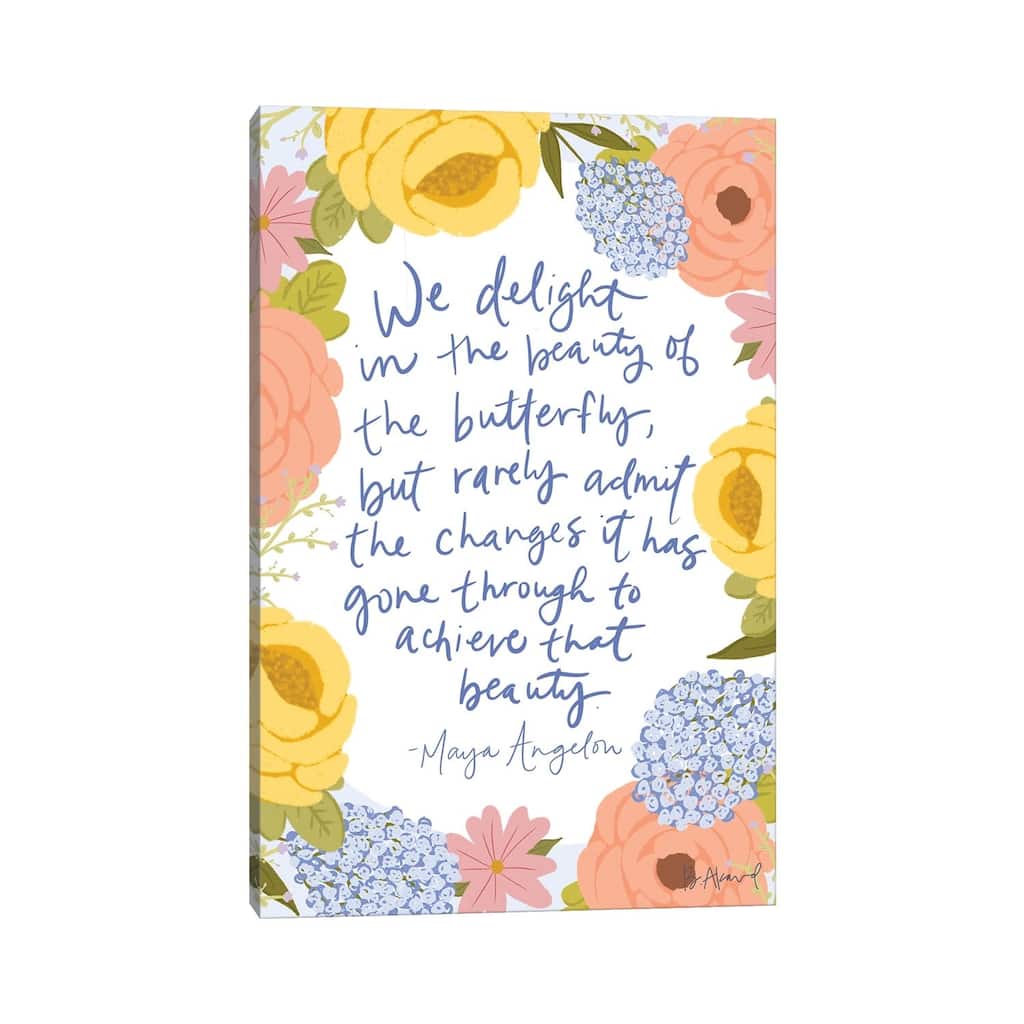 We delight
in the beauty of
the butterfly,
but rarely admit
the changes it has
gone through to
achieve that
beauty.
-Maya Angelou